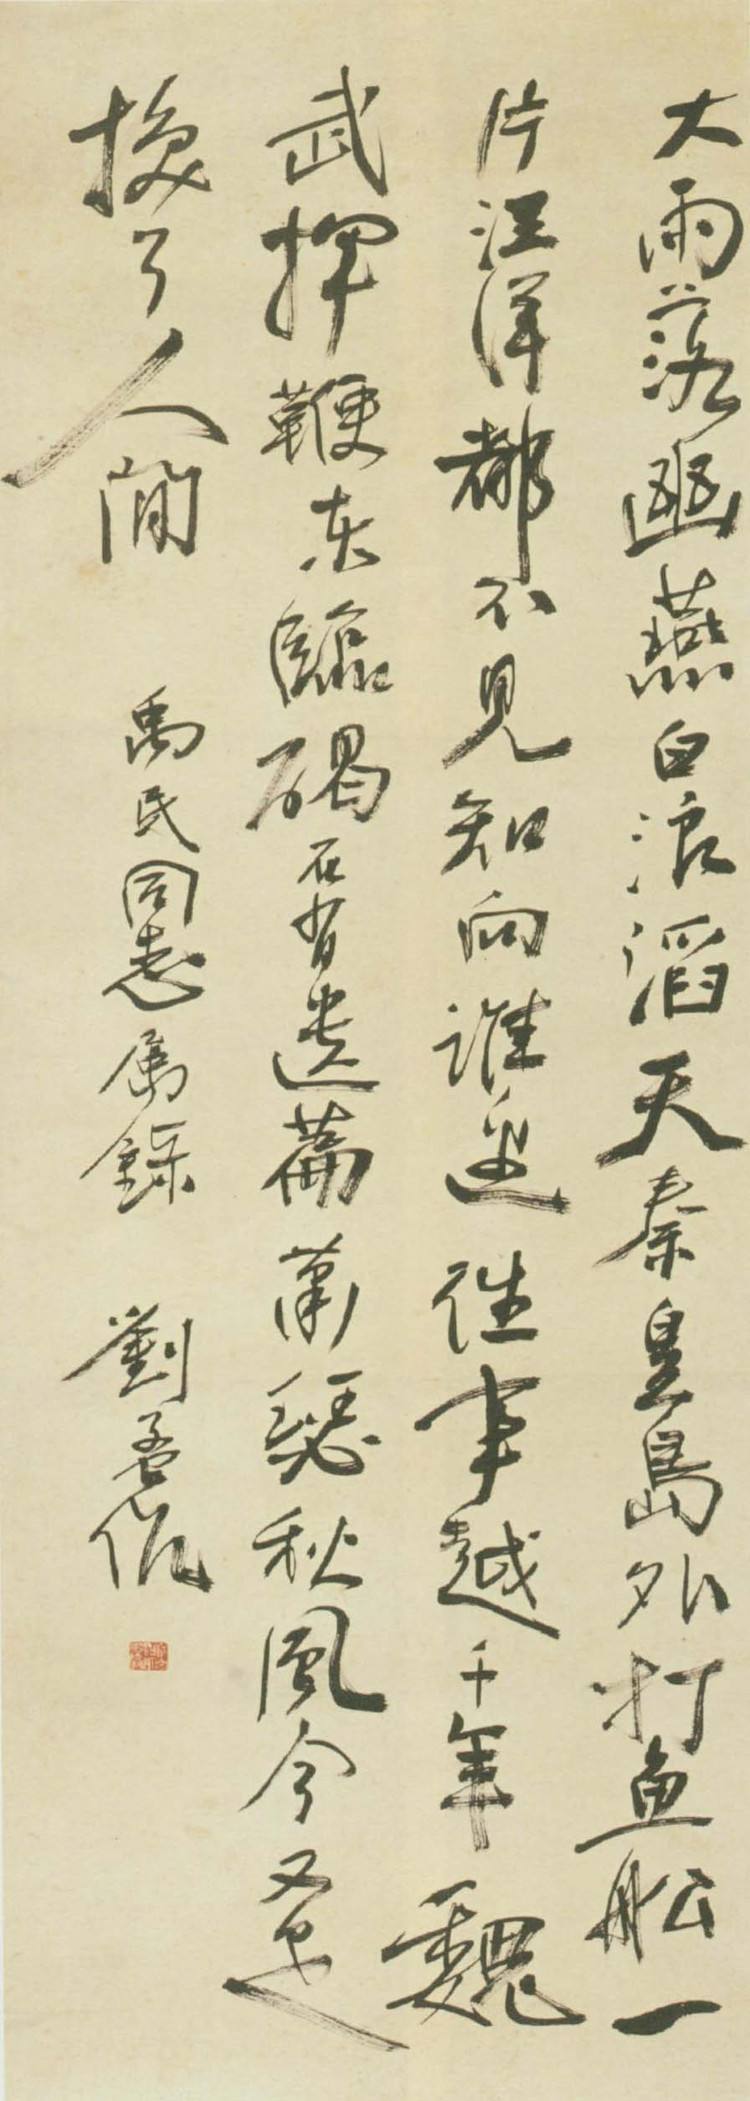 大雨落幽燕白浪滔天秦皇島外打鱼舩一
片汪洋都不見知向誰邊往事越千年魏
武揮鞭东臨碣石有遺篇蕭瑟秋風今又是
換了人間 禹民同志属錄 劉孟伉